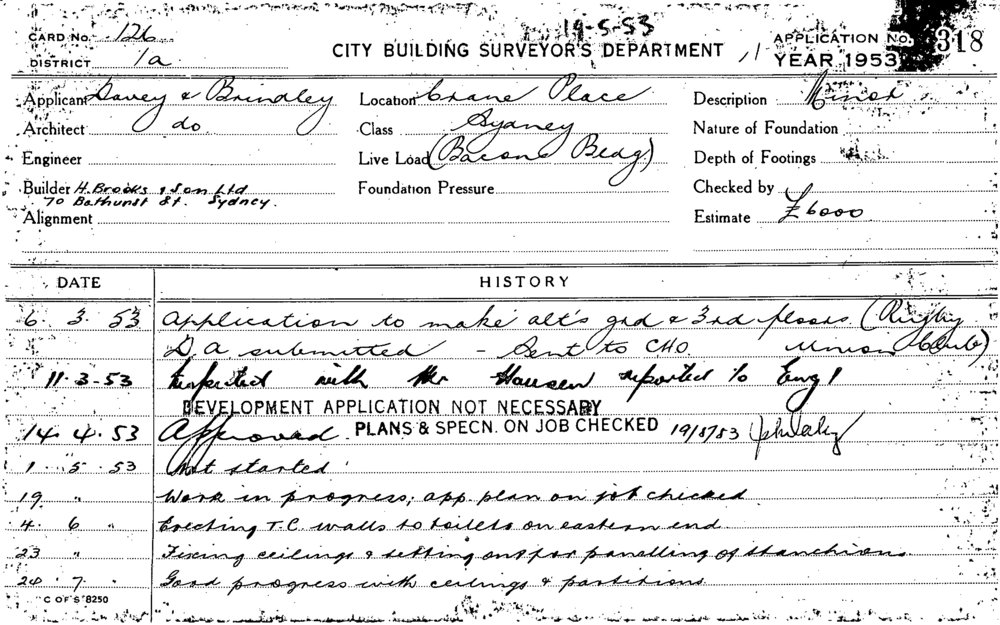 19-5-53
CARD NO. 126
DISTRICT 1a
CITY BUILDING SURVEYOR'S DEPARTMENT
11
APPLICATION No. 318
YEAR 1953
Applicant Davey & Brindley
Location Crane Place
Description Minor
Architect do
Class Sydney
Nature of Foundation
Engineer
Live Load (Bacons Bldg)
Depth of Footings
Builder H. Brooks & Son Ltd
70 Bathurst St. Sydney.
Foundation Pressure
Checked by
Alignment
Estimate £6000
DATE HISTORY
6. 3. 53 Application to make alt's grd & 3rd floors (Rugby
D.A submitted - Sent to CHO Union Club)
11-3-53 Inspected with Mr reported to Eng/
DEVELOPMENT APPLICATION NOT NECESSARY
14. 4. 53 Approved. PLANS & SPECN. ON JOB CHECKED 19/5/53
1. 5. 53 Not started
19 " Work in progress; app. plan on job checked
4. 6 " Erecting T.C. walls to toilets on eastern end
23 " Fixing ceilings & setting out for panelling of stanchions
24 7. " Good progress with ceilings & partitions
C OF S 8250